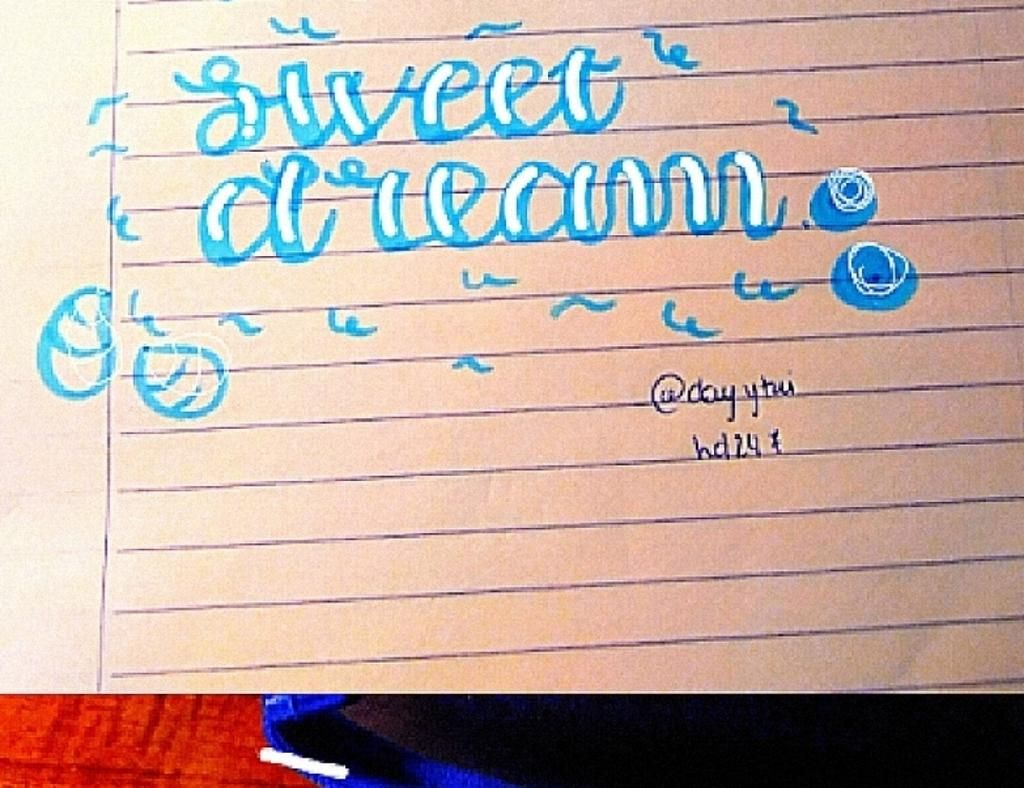 Sweet
dream.
@dayytui
hd24